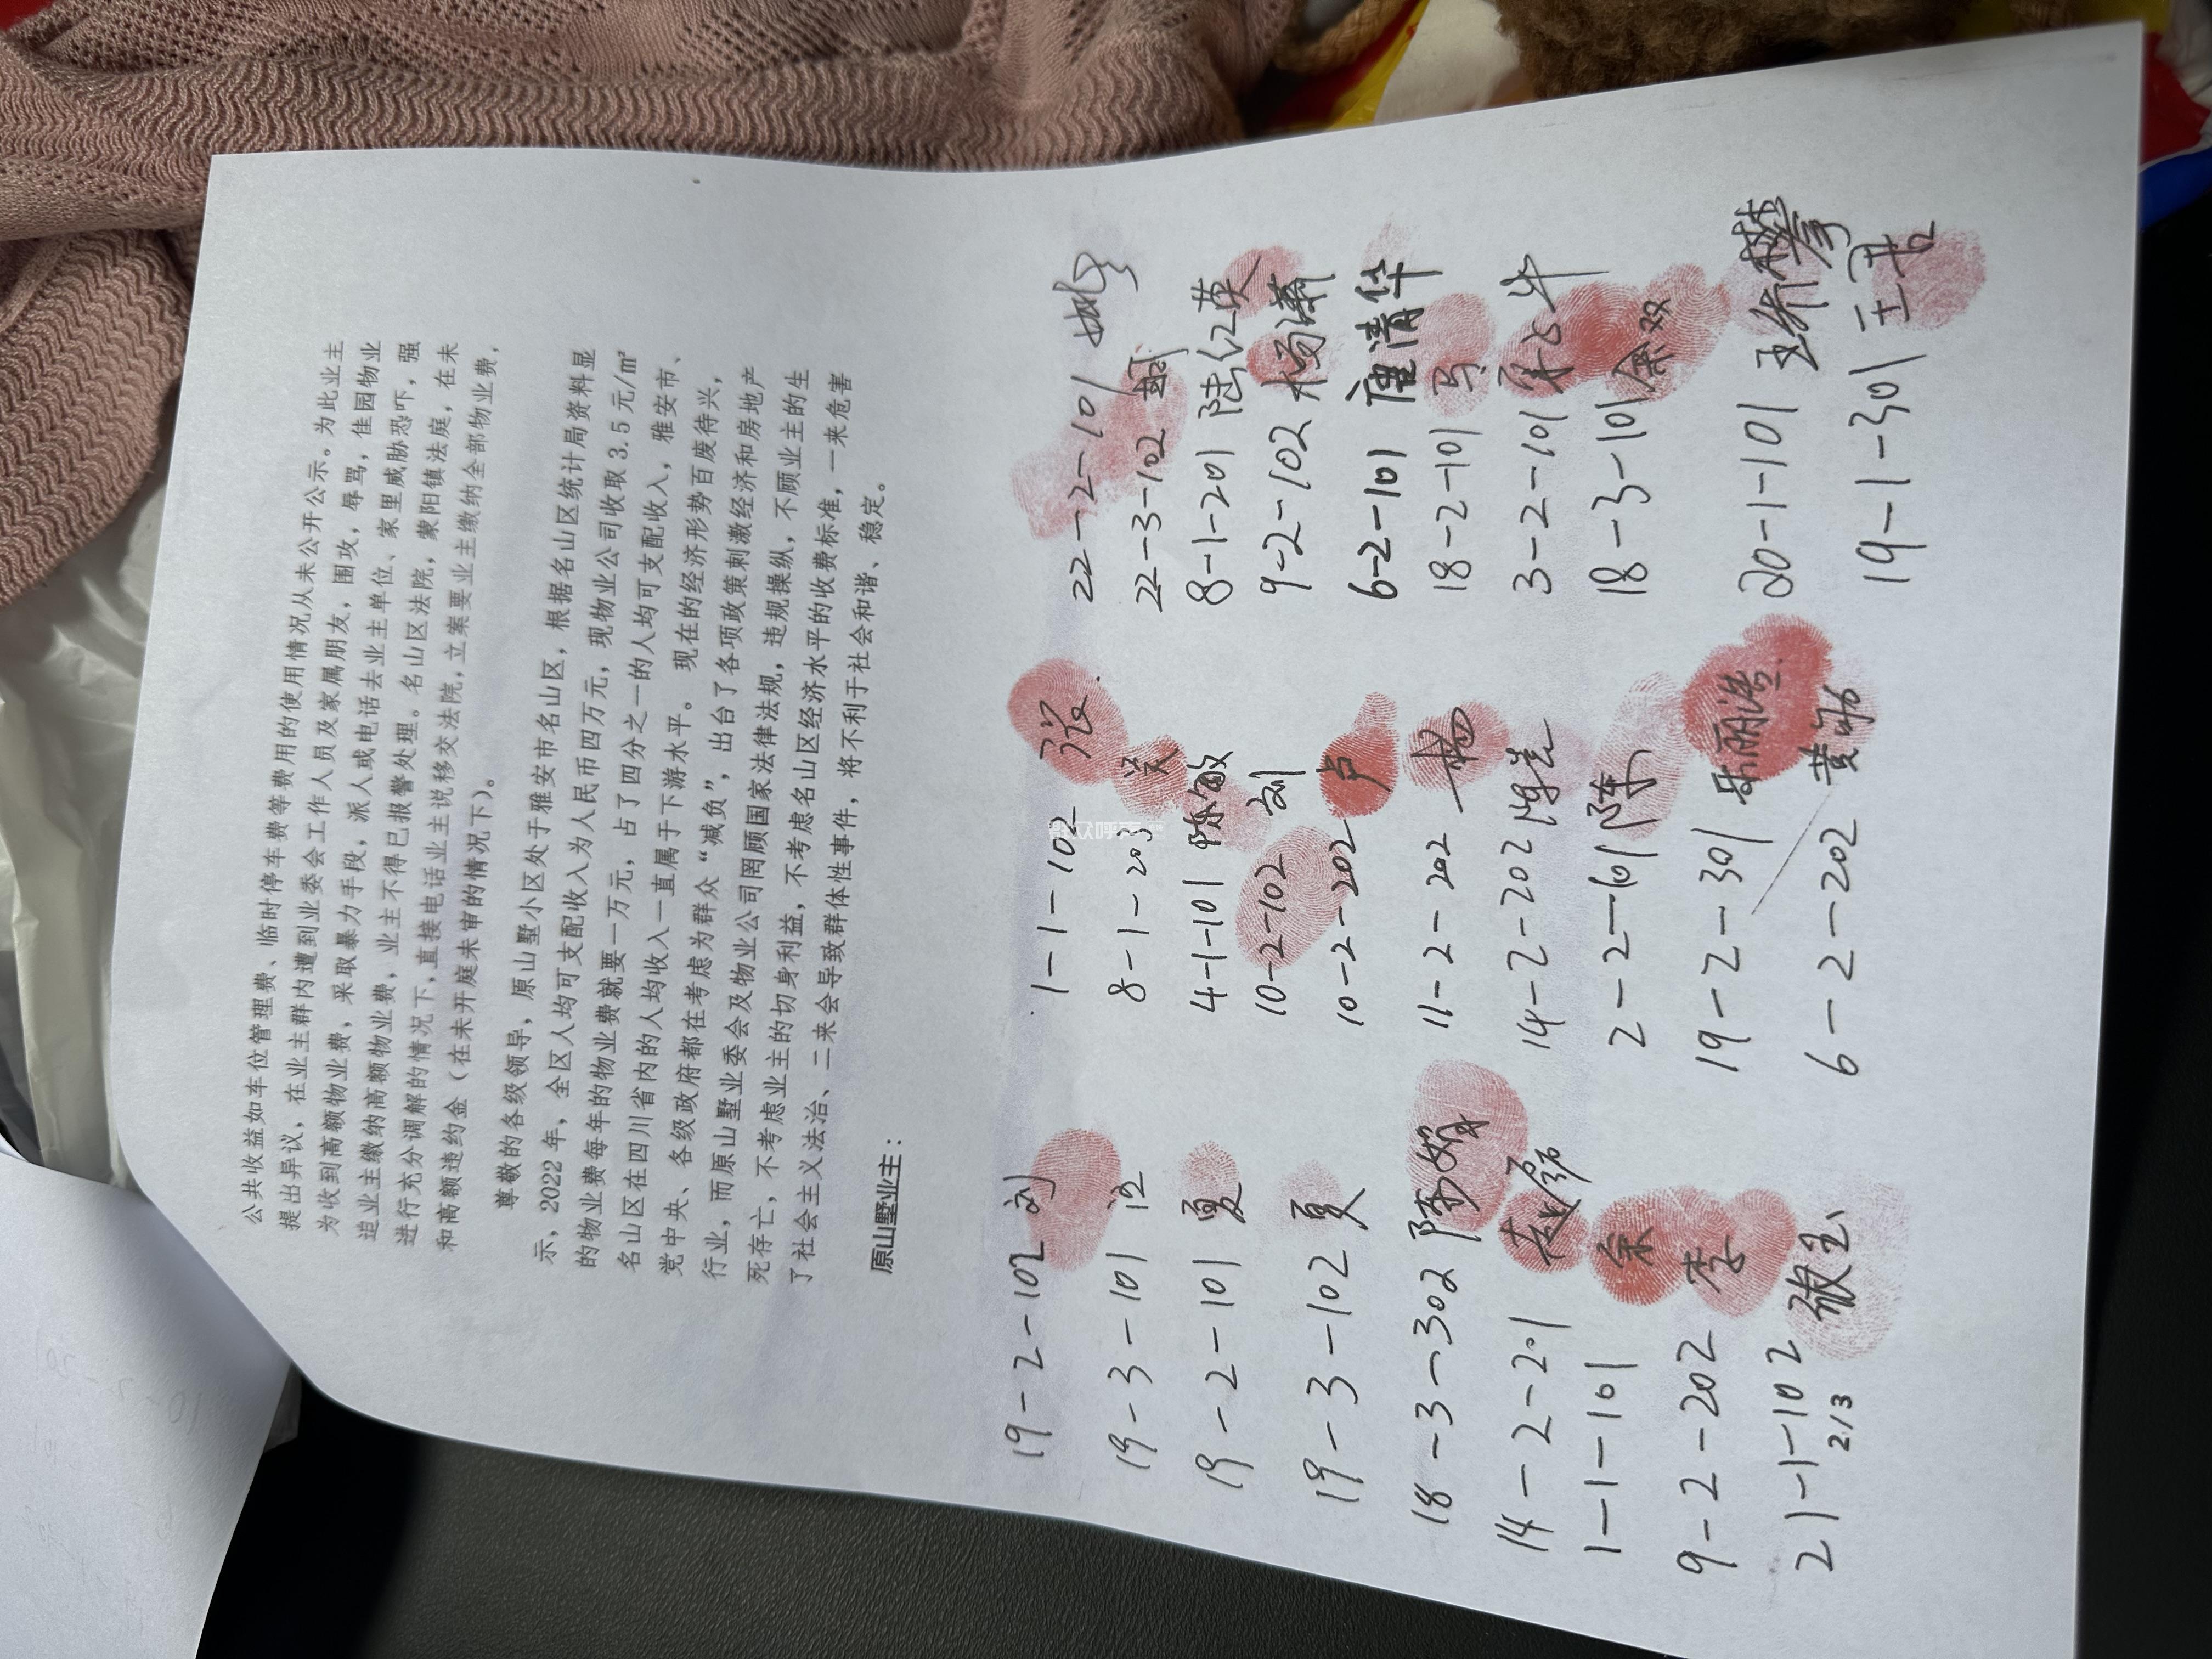 公共收益如车位管理费、临时停车费等费用的使用情况从未公开公示。为此业主
提出异议，在业主群内遭到业委会工作人员及家属朋友，围攻，辱骂，佳园物业
为收到高额物业费，采取暴力手段，派人或电话去业主单位、家里威胁恐吓，强
追业主缴纳高额物业费，业主不得已报警处理。名山区法院，蒙阳镇法庭，在未
进行充分调解的情况下，直接电话业主说移交法院，立案要业主缴纳全部物业费，
和高额违约金（在未开庭未审的情况下）。
尊敬的各级领导，原山墅小区处于雅安市名山区，根据名山区统计局资料显
示，2022年，全区人均可支配收入为人民币四万元，现物业公司收取3.5元/㎡
的物业费每年的物业费就要一万元，占了四分之一的人均可支配收入，雅安市、
名山区在四川省内的人均收入一直属于下游水平。现在的经济形势百废待兴，
党中央、各级政府都在考虑为群众“减负”，出台了各项政策刺激经济和房地产
行业，而原山墅业委会及物业公司罔顾国家法律法规，违规操纵，不顾业主的生
死存亡，不考虑业主的切身利益，不考虑名山区经济水平的收费标准，一来危害
了社会主义法治、二来会导致群体性事件，将不利于社会和谐、稳定。
原山墅业主：
19-2-102 刘 1-1-102 张 22-2-101
19-3-101 汪 8-1-203 吴 22-3-102
19-2-101 夏 4-1-101 陈敏 8-1-201 陆红英
19-3-102 夏 10-2-102 刘 9-2-102 杨潇
18-3-302 陈娟 10-2-202 卢 6-2-101 唐清华
14-2-201 赵 11-2-202 杨 18-2-101 马
1-1-101 余 14-2-202 陈 3-2-101
9-2-202 李 2-2-101 陈 18-3-101 余双
21-1-102 张玉 19-2-301 20-1-101 王
2/3 6-2-202 黄 19-1-301 王
群众呼声